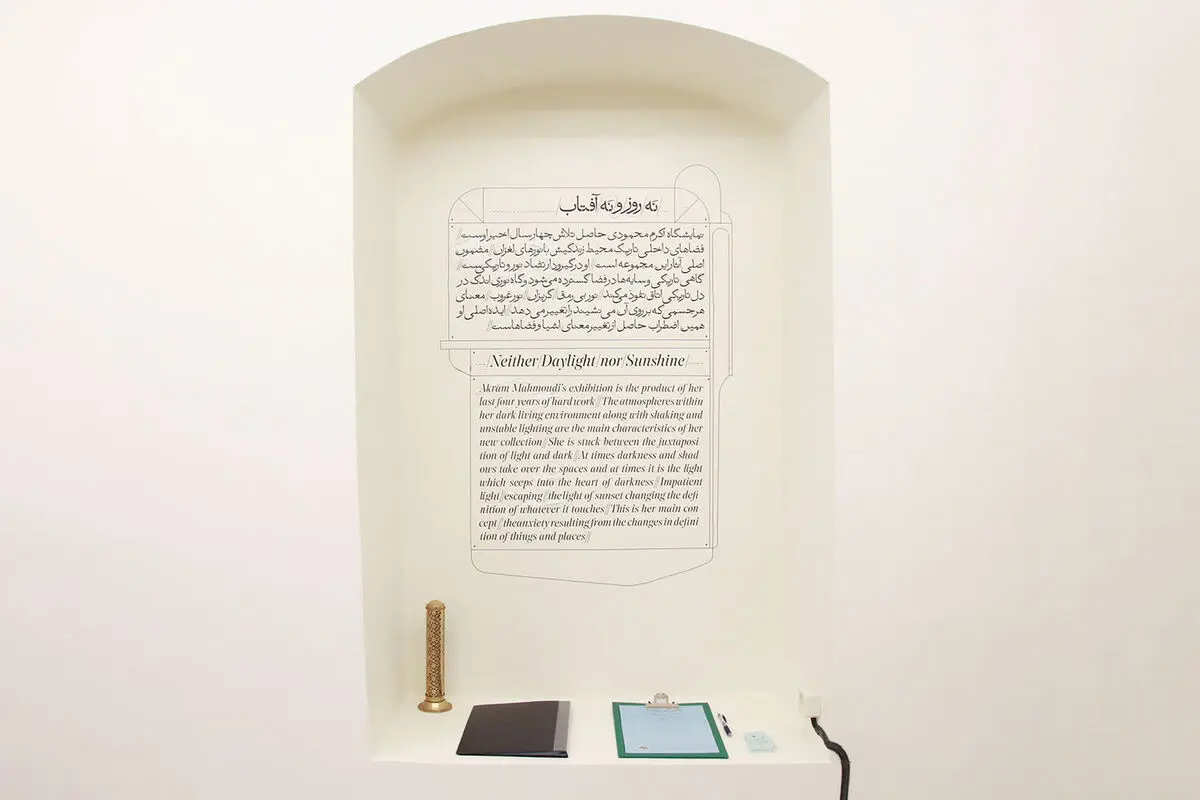 نه روز و نه آفتاب
نمایشگاه اکرم محمودی حاصل تلاش چهار سال اخیر اوست//
فضاهای داخلی تاریک محیط زندگیش با نورهای لغزان// مضمون
اصلی آثار این مجموعه است// او درگیرودار تضاد نور و تاریکی‌ست//
گاهی تاریکی و سایه‌ها در فضا گسترده می‌شود و گاه نوری اندک در
دل تاریکی اتاق نفوذ می‌کند// نور بی‌رمق/ گریزان/ نور غروب/ معنای
هر جسمی که بر روی آن می‌نشیند را تغییر می‌دهد// ایده اصلی او
همین اضطراب حاصل از تغییر معنای اشیا و فضاهاست//
/Neither/Daylight/nor/Sunshine/
Akram Mahmoudi's exhibition is the product of her
last four years of hard work//The atmospheres within
her dark living environment along with shaking and
unstable lighting are the main characteristics of her
new collection/She is stuck between the juxtaposi
tion of light and dark//At times darkness and shad
ows take over the spaces and at times it is the light
which seeps into the heart of darkness//Impatient
light//escaping//the light of sunset changing the defi
nition of whatever it touches//This is her main con
cept//the anxiety resulting from the changes in defini
tion of things and places//